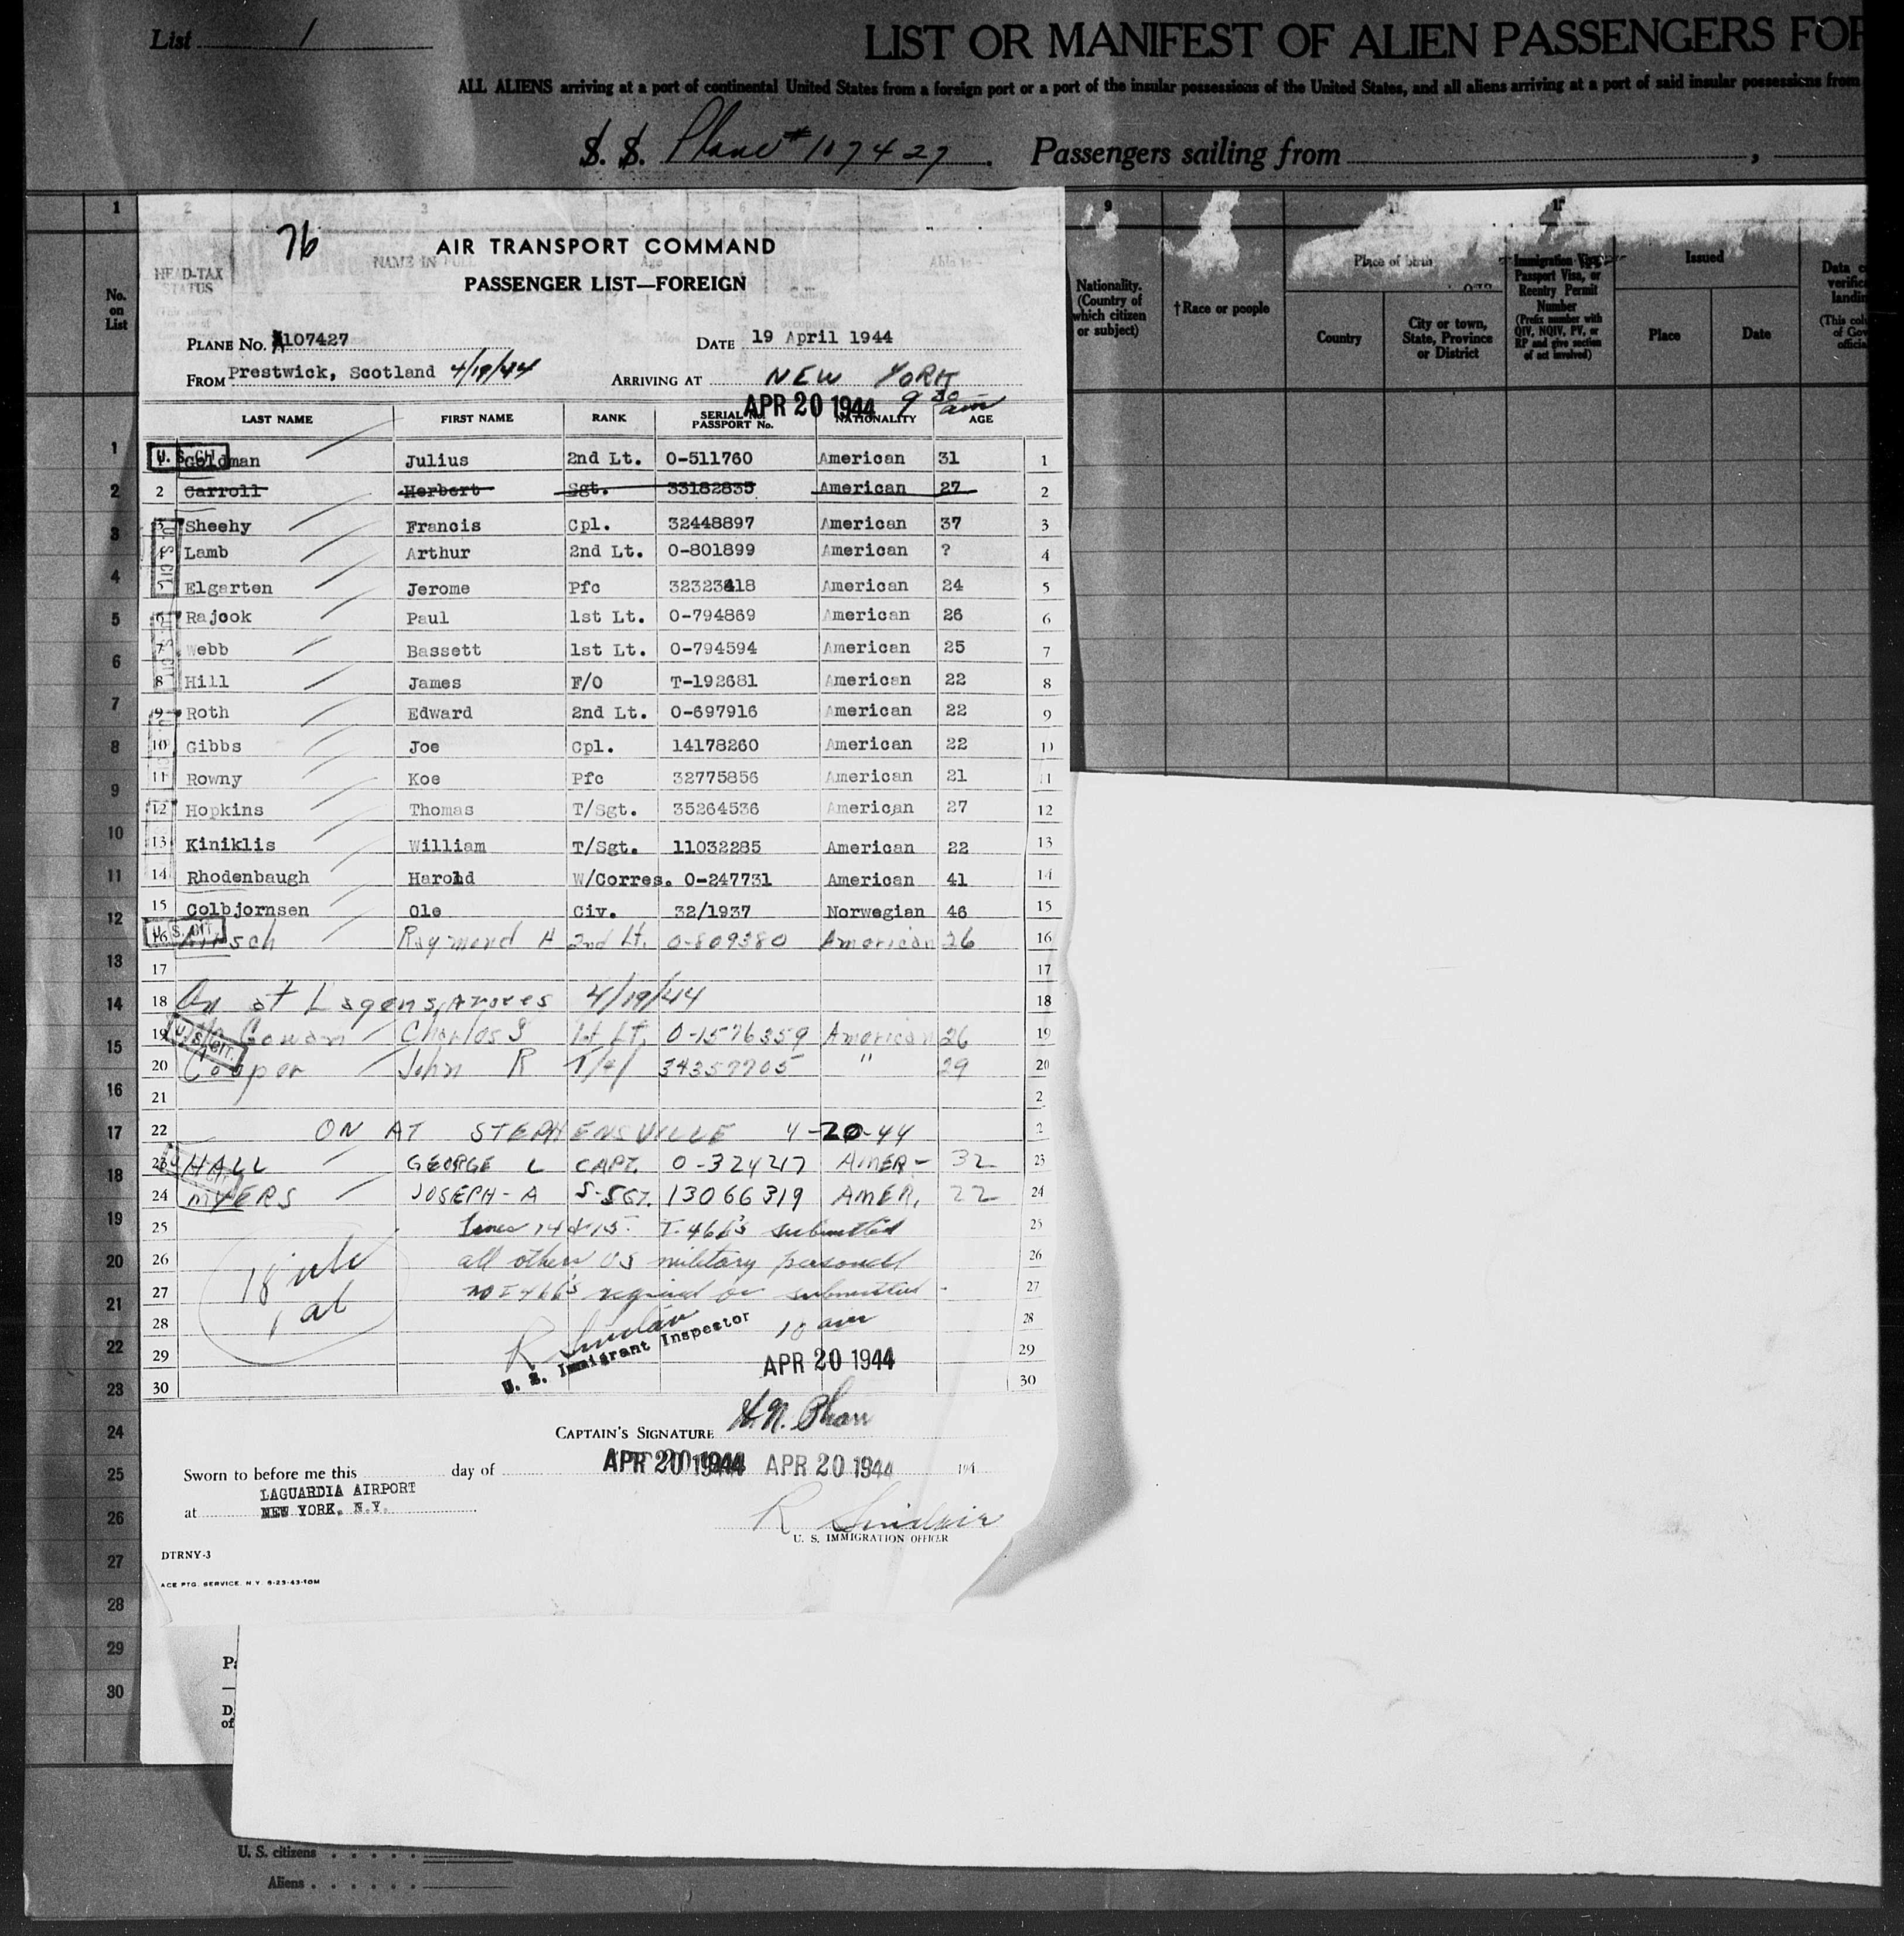 List 1
LIST OR MANIFEST OF ALIEN PASSENGERS FOR
ALL ALIENS arriving at a port of continental United States from a foreign port or a port of the insular possessions of the United States, and all aliens arriving at a port of said insular possessions from
S. S. Plane # 107427. Passengers sailing from ,
1 2 3 4 5 6 7 8 9 10 11
76
AIR TRANSPORT COMMAND
PASSENGER LIST—FOREIGN
HEAD-TAX STATUS
NAME IN FULL
Age
Able to—
Calling or occupation
No. on List
Nationality. (Country of which citizen or subject)
†Race or people
Place of birth
Country
City or town, State, Province or District
Immigration Visa, Passport Visa, or Reentry Permit Number
(Prefix number with QIV, NQIV, PV, or RP and give section of act involved)
Issued
Place
Date
PLANE NO. 107427 DATE 19 April 1944
FROM Prestwick, Scotland 4/19/44 ARRIVING AT NEW YORK
APR 20 1944 9 30 am
LAST NAME FIRST NAME RANK SERIAL No. PASSPORT No. NATIONALITY AGE
U. S. CIT.
1 Goldman Julius 2nd Lt. O-511760 American 31 1
2 Carroll Herbert Sgt. 33182835 American 27 2
3 Sheehy Francis Cpl. 32448897 American 37 3
4 Lamb Arthur 2nd Lt. O-801899 American ? 4
5 Elgarten Jerome Pfc 32323418 American 24 5
6 Rajook Paul 1st Lt. O-794869 American 26 6
7 Webb Bassett 1st Lt. O-794594 American 25 7
8 Hill James F/O T-192681 American 22 8
9 Roth Edward 2nd Lt. O-697916 American 22 9
10 Gibbs Joe Cpl. 14178260 American 22 10
11 Rowny Koe Pfc 32775856 American 21 11
12 Hopkins Thomas T/Sgt. 35264536 American 27 12
13 Kiniklis William T/Sgt. 11032285 American 22 13
14 Rhodenbaugh Harold W/Corres. O-247731 American 41 14
15 Colbjornsen Ole Civ. 32/1937 Norwegian 46 15
U. S. CIT.
16 Raymond H 2nd Lt. O-809380 American 26 16
17 17
18 On at Lagens, Azores 4/19/44 18
19 Cowan Charles S 1st Lt. O-1576359 American 26 19
U. S. CIT.
20 Cooper John R T/4 34359705 " 29 20
21 2
22 ON AT STEPHENSVILLE 4-20-44 2
23 HALL GEORGE L CAPT. O-324217 AMER- 32 23
24 MYERS JOSEPH-A S-SGT. 13066319 AMER. 22 24
25 Lines 14 & 15. I-466's submitted 25
26 all others US military personell 26
27 no I 466's required or submitted. 27
28 R Sinclair 10 am 28
U. S. Immigrant Inspector
29 APR 20 1944 29
30 30
CAPTAIN'S SIGNATURE
Sworn to before me this day of APR 20 1944 APR 20 1944 194
LAGUARDIA AIRPORT
at NEW YORK, N.Y.
R Sinclair
U. S. IMMIGRATION OFFICER
DTRNY-3
ACE PTG. SERVICE. N.Y. 8-23-43-10M
1
2
3
4
5
6
7
8
9
10
11
12
13
14
15
16
17
18
19
20
21
22
23
24
25
26
27
28
29
30
U. S. citizens
Aliens